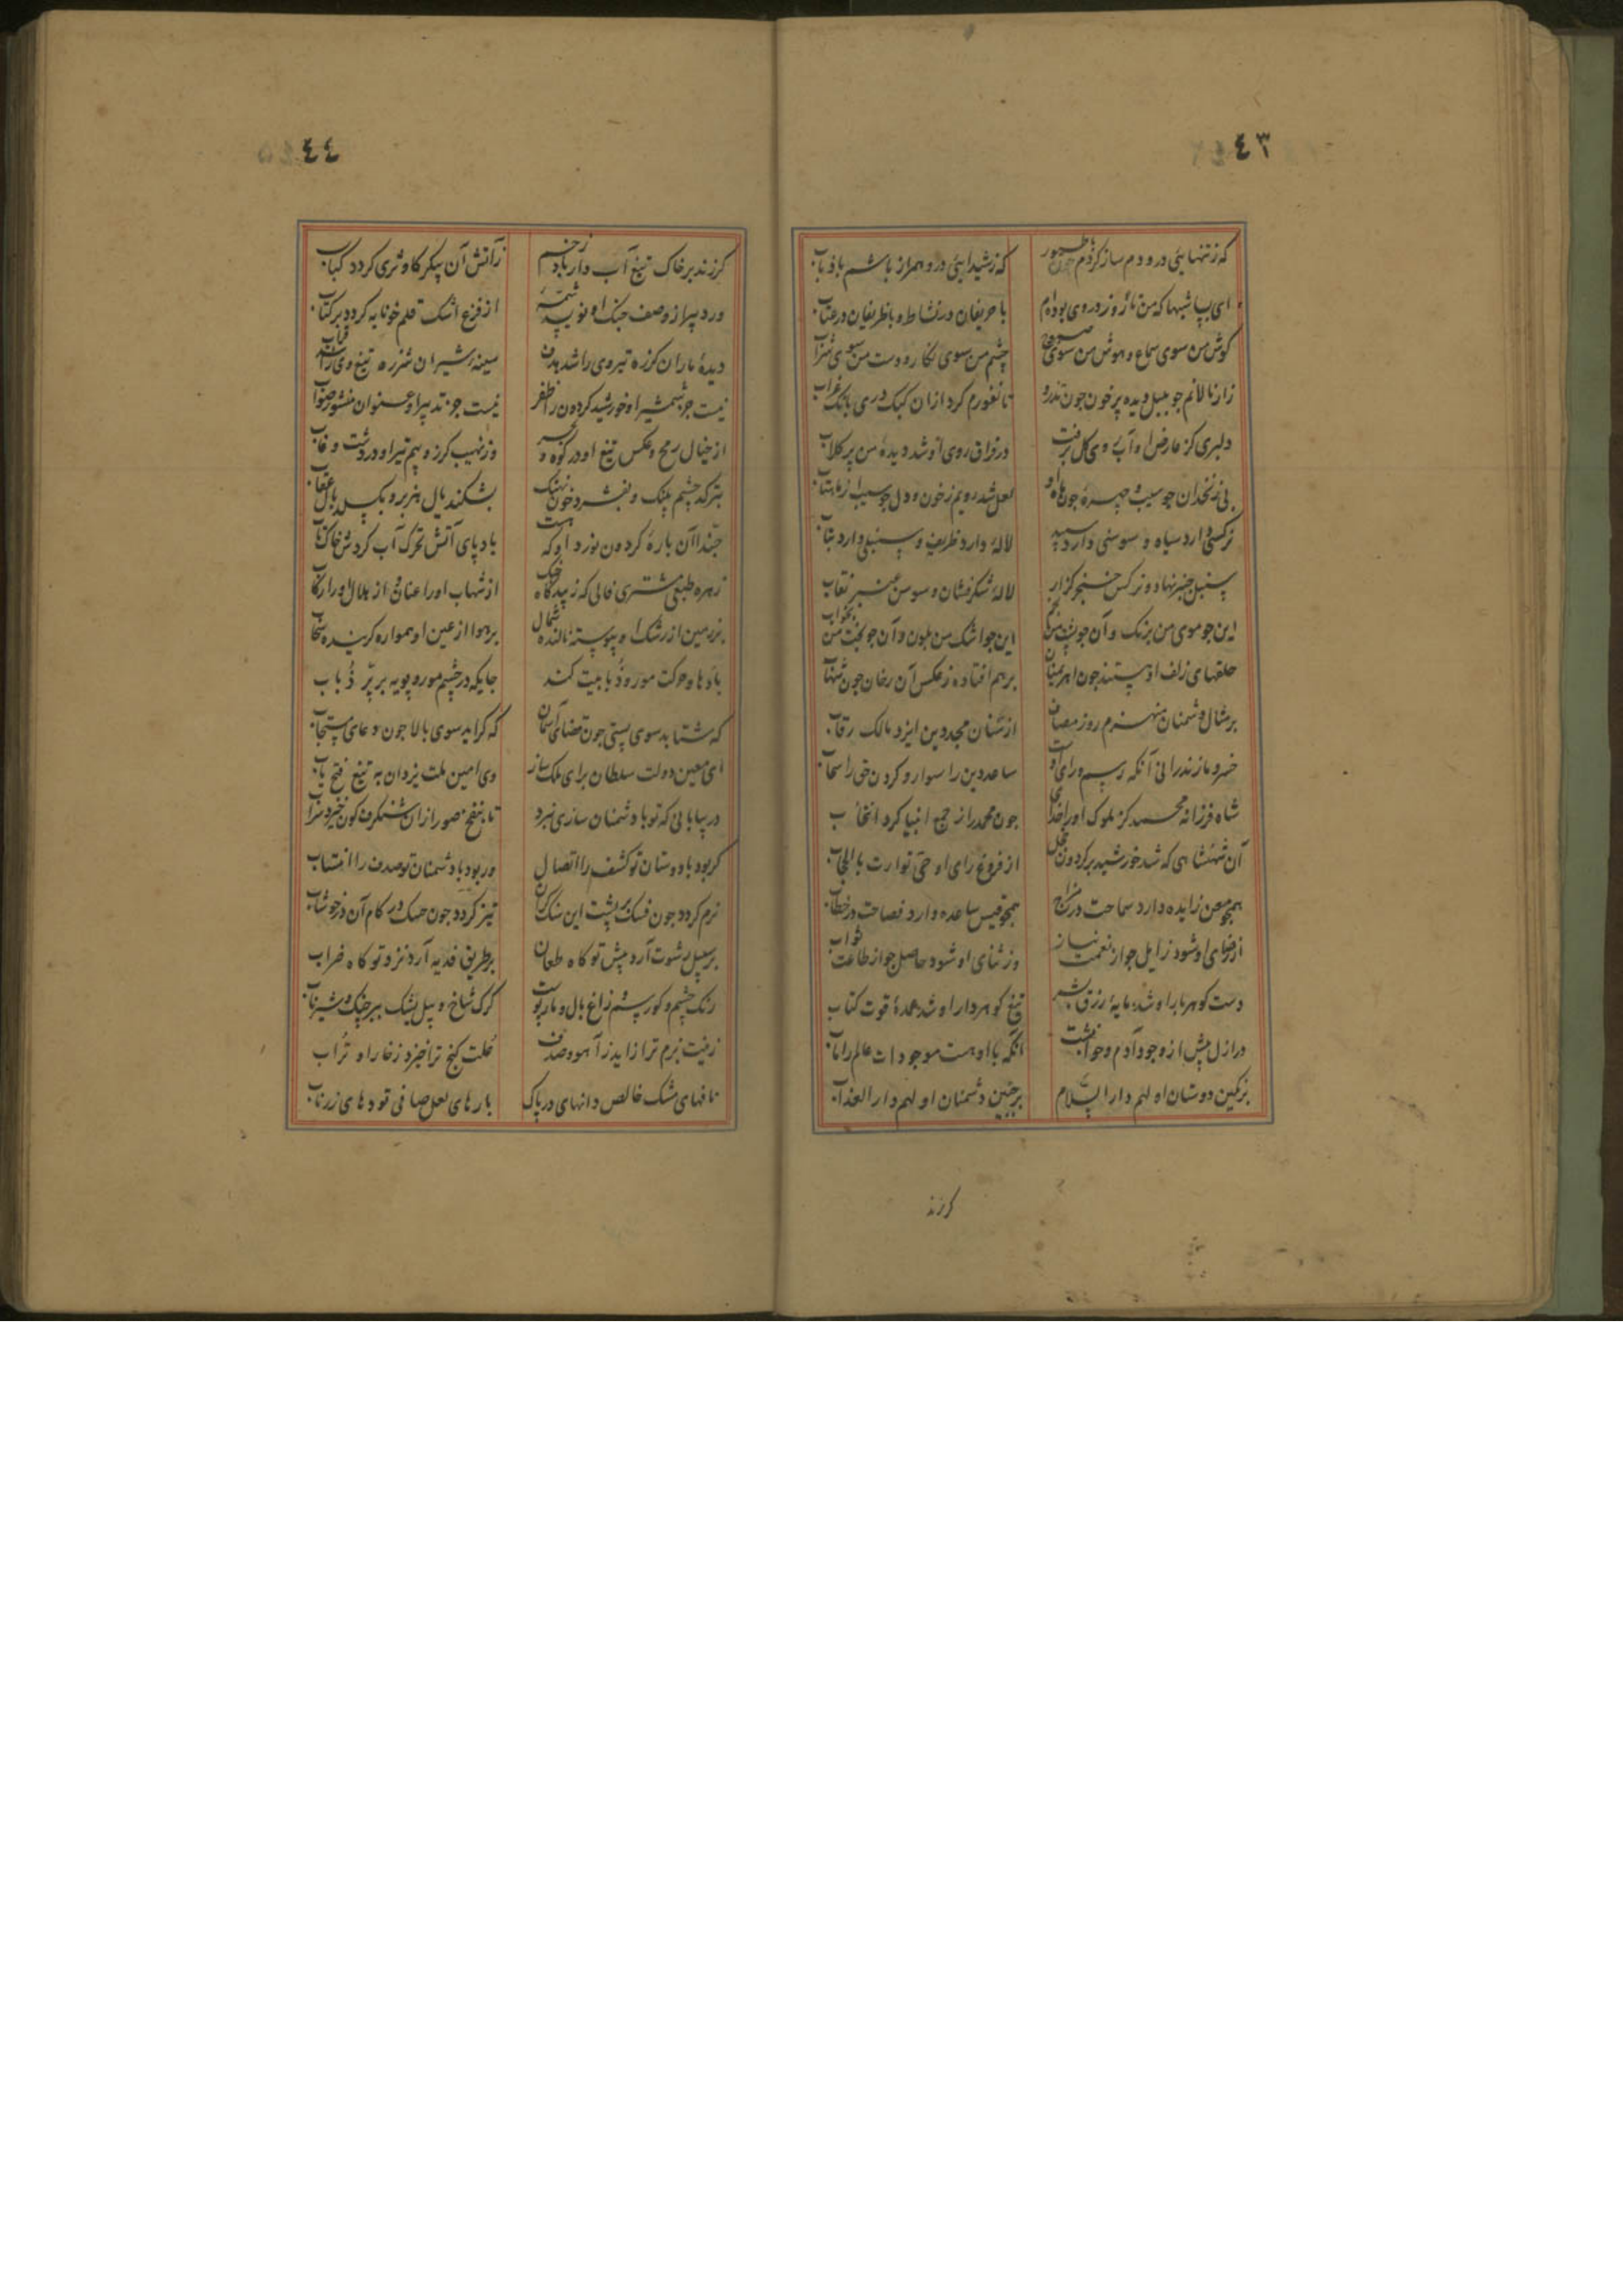 ٤٣
که ز تنهایی در و دم ساز کردم با طیور که ز شیدایی در و همراز باشم با ذباب
ای بسا شبها که من تا روز در وی بوده‌ام با حریفان در نشاط و با ظریفان در عتاب
کوش من سوی سماع و هوش من سوی صبوح چشم من سوی نکار و دست من سوی شراب
زار نالانم جو بلبل دیده پر خون جون تذرو تا نفورم کرد ازان کبک دری بانک غراب
دلبری کز عارض او آب وی کل برفت در فراق روی او شد دیدهٔ من پر کلاب
بی زنخدان جو سیب و چهرهٔ جون ماه او لعل شد رویم ز خون و دل جو سیب از ماهتاب
نرکسی دارد سیاه و سوسنی دارد سپید لالهٔ دارد ظریف و سنبلی دارد بتاب
سنبل جنبر نهاد و نرکس خنجر کزار لالهٔ شکر فشان و سوسن عنبر نقاب
این جو موی من برنک و آن جو پشت من بخم این جو اشک من بلون و آن جو بخت من بخواب
حلقهای زلف او پستند جون اهریمنان برهم افتاده ز عکس آن رخان جون شهاب
بر مثال دشمنان منهزم روز مصاف از سنان مجد دین ایزد مالک رقاب
خسرو مازندرانی آنکه رسم و رای اوست ساعد دین را سوار و کردن حق را سحاب
شاه فرزانه محمد کز ملوک او را خدای جون محمد را ز جمع انبیا کرد انتخاب
آن شهنشاهی که شد خورشید بر کردون خجل از فروغ رای او حتی توارت بالحجاب
همجو معن زایده دارد سماحت در مزاج همجو قیس ساعده دارد فصاحت در خطاب
از رضای او شود زایل جو از نعمت نیاز وز ثنای او شود حاصل جو از طاعت ثواب
دست کوهر بار او شد مایهٔ رزق بشر تیغ کوهر دار او شد عمدهٔ قوت کتاب
در ازل پیش از وجود آدم و حوا نبشت آنکه با او هست موجودات عالم را مآب
بر نکین دوستان او لهم دار السلام بر جبین دشمنان او لهم دار العذاب
کر زند
٤٤
کر زند بر خاک تیغ آب دار باد زخم ز آتش آن پیکر کاو ثری کردد کباب
ور دبیر از وصف جنک او نویسد شمهٔ از فزع اشک قلم خونابه کردد بر کتاب
دیدهٔ ماران کرزه تیر وی را شد هدف سینهٔ شیران شرزه تیغ وی را شد قراب
نیست جز شمشیر او خورشید کردون ظفر نیست جز تدبیر او عنوان منشور صواب
از خیال رمح و عکس تیغ او در کوه و بحر وز نهیب کرز و بیم تیر او در دشت و غاب
بترکد چشم پلنک و بفسرد خون نهنک بشکند یال هزبر و بکسلد بال عقاب
حبذا آن بارهٔ کردون نورد او که هست باد پای آتش تحرک آب کردش خاک تاب
زهره طبعی مشتری فالی که زیبد کاه جنک از شهاب او را عنان و از هلال او را رکاب
بر زمین از رشک او پیوسته نالنده شمال بر هوا از عین او همواره کرینده سحاب
باد ها و حرکت مور و ذبابیت کند جایکه در چشم مور و پویه بر پرّ ذُباب
که شتابد سوی پستی جون قضای آسمان که کراید سوی بالا جون دعای مستجاب
ای معین دولت سلطان برای ملک ساز وی امین ملت یزدان به تیغ فتح یاب
در بیابانی که تو با دشمنان سازی نبرد تا بنفخ صور ازان شنکرف کون خیزد سراب
کر بود با دوستان تو کشف را اتصال ور بود با دشمنان تو صدف را انتساب
نرم کردد جون فنک بر پشت این سنک کران تیز کردد جون خسک در کام آن در خوشاب
بر سبیل رشوت آرد پیش تو کاه طعان بر طریق فدیه آرد نزد تو کاه ضراب
رنک چشم و کور سم زاغ بال و مار پوست کرک شاخ و پیل یشک ببر چنک و شیر ناب
زینت بزم ترا زاید ز آهو و صدف خلعت کنج ترا خیزد ز خارا و تُراب
نافهای مشک خالص دانهای در پاک بارهای لعل صافی تودهای زر ناب